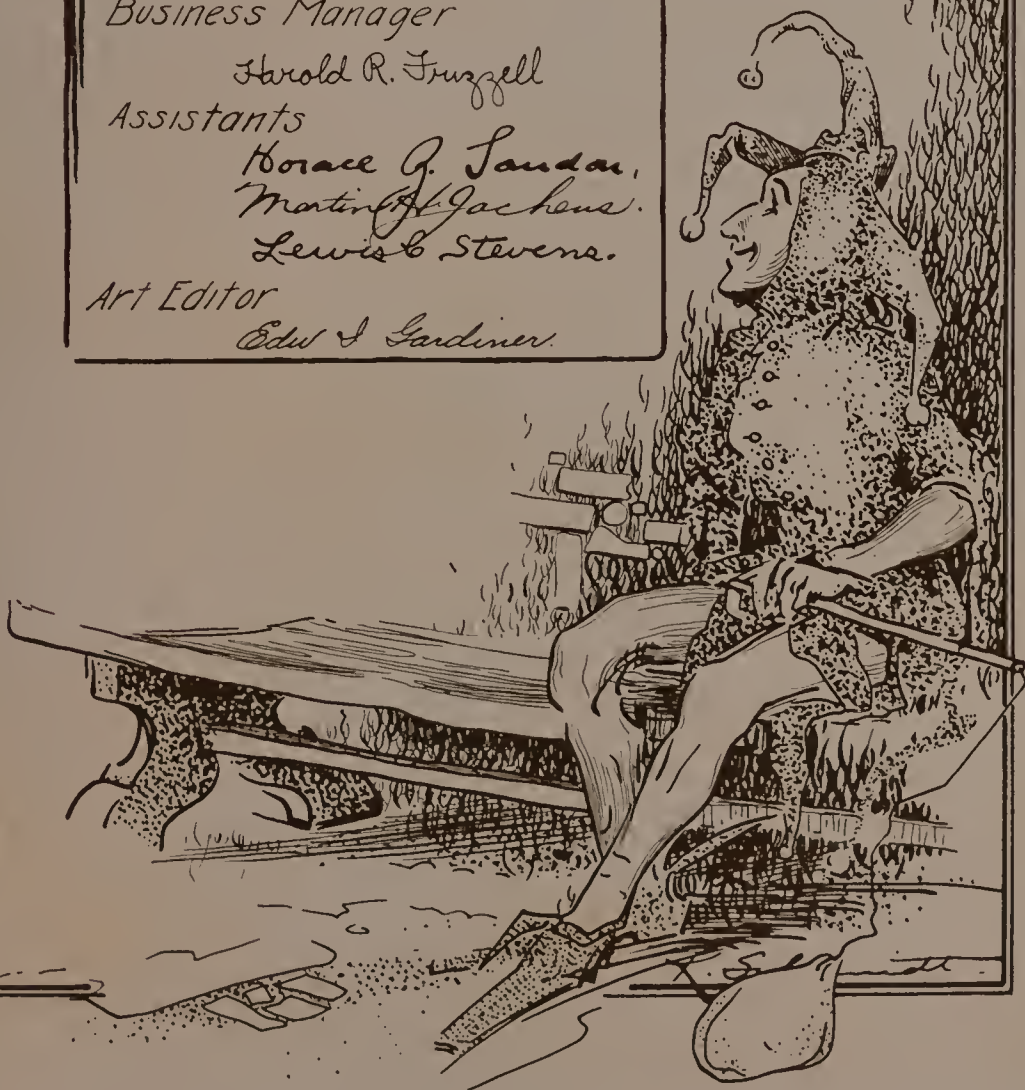 Business Manager
Harold R. Fruzzell
Assistants
Horace G.
Martin H. Jachens.
Lewis C Stevens.
Art Editor
Edw I Gardiner.